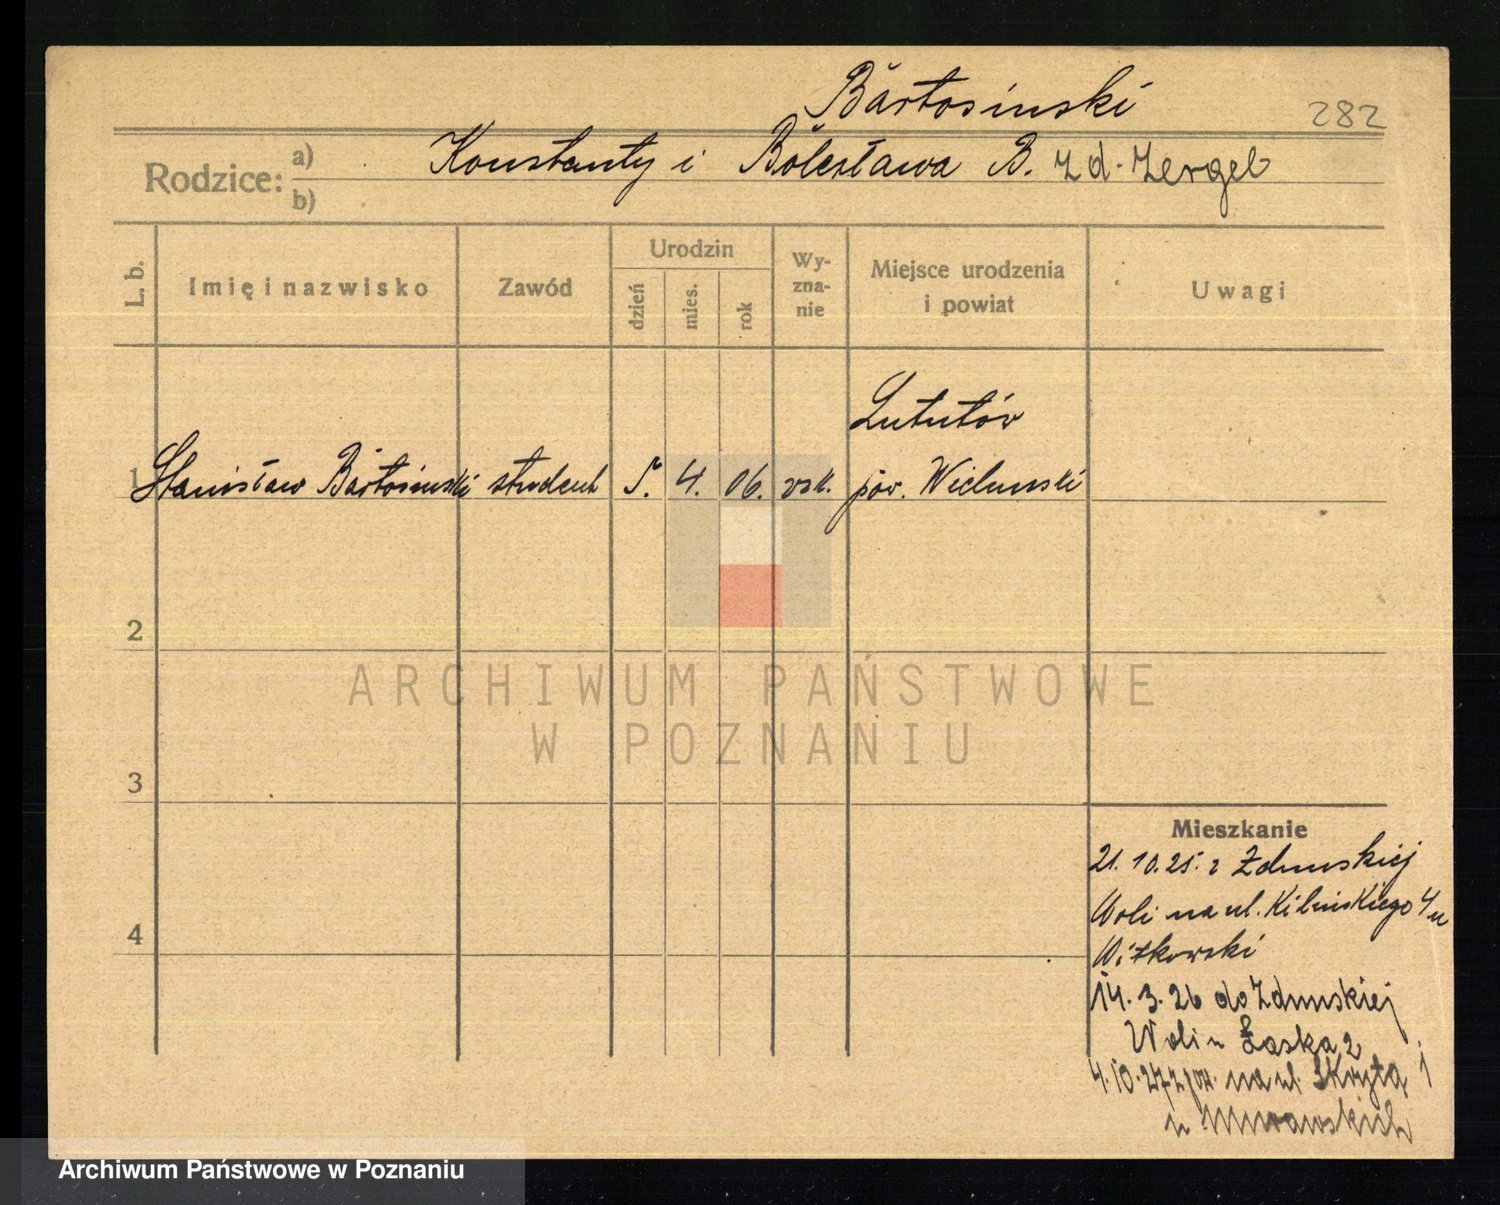 Bartosinski 282
Rodzice: a) Konstanty i Bolesława B. z d.
b)
L. b. Imię i nazwisko Zawód Urodzin dzień mies. rok Wy-zna-nie Miejsce urodzenia i powiat Uwagi
Lututów
1 Stanisław Bartosinski student 5. 4. 06. rzk. pow. Wieluński
2
3
4
Mieszkanie
21.10.25. z Zduńskiej
Woli na ul. Kilińskiego 4 u
Witkowski
14.3.26 do Zduńskiej
Woli Łaska 2
4.10.27 na ul. Skryta 1
u Murawskich
ARCHIWUM PAŃSTWOWE
W POZNANIU
Archiwum Państwowe w Poznaniu